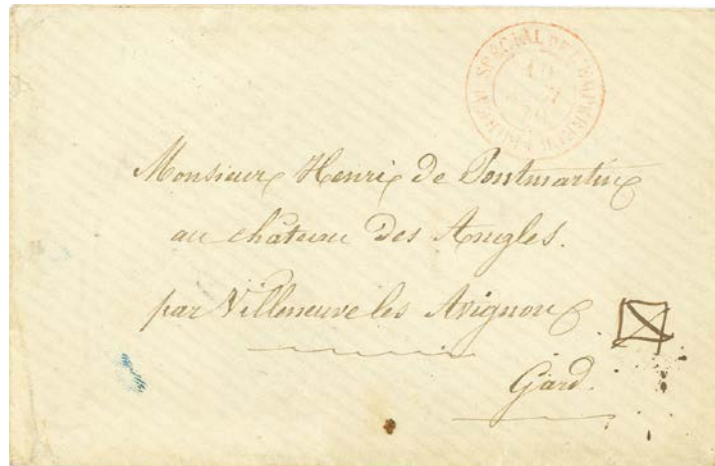 BUREAU SPÉCIAL DE L'EMPEREUR
10
Monsieur Henri de Pontmartin
au château des Angles.
par Villeneuve les Avignon
Gard.